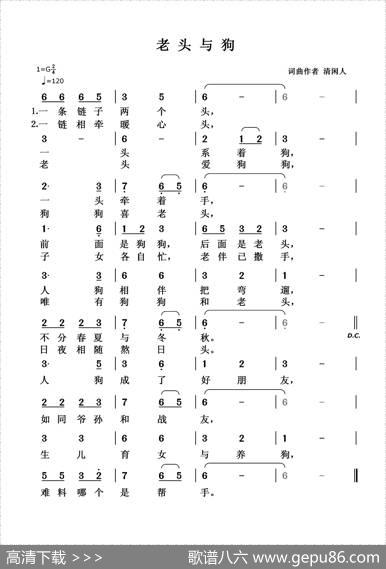 老头与狗
1=G 2/4
♩=120
词曲作者 清闲人
6 6 6 5 | 3 5 | 6 - | 6 - |
1.一条链子 两个 头,
2.一链相牵 暖心 头,
3 - | 6 - | 6 1 2 | 3 - |
一 头 系着 狗,
老 头 爱狗 狗,
2· 3 | 7 6 5 | 6 - | 6 - |
一 头 牵着 手,
狗 狗 喜老 头,
1· 6 | 1 2 3 | 6 5 3 2 | 3 - |
前 面 是狗狗, 后面是老 头,
子 女 各自忙, 老伴已撒 手,
3· 3 | 1 2 3 | 3 2 | 1 - |
人 狗 相伴 把弯 遛,
唯 有 狗狗 和老 头,
2 2 2 3 | 7 6 5 | 6 - | 6 - |
D.C.
不分春夏 与冬 秋。
日夜相随 熬日 头。
3· 5 | 3 2 | 1 2 | 3 - |
人 狗 成了 好朋 友,
2 2 2 3 | 7 6 5 | 6 - | 6 - |
如同爷孙 和战 友,
3 3 | 6 6 | 3 2 | 1 - |
生儿 育女 与养 狗,
5 5 3 2 | 7 6 5 | 6 - | 6 - ‖
难料哪个 是帮 手。
高清下载 >>>
歌谱八六 www.gepu86.com